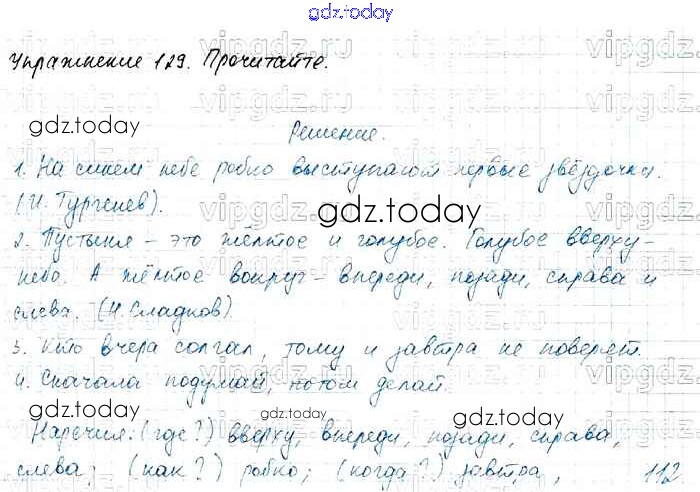 gdz.today
Упражнение 129. Прочитайте.
gdz.today
Решение.
1. На синем небе робко выступают первые звёздочки.
(И. Тургенев).
gdz.today
2. Пустыня – это жёлтое и голубое. Голубое вверху –
небо. А жёлтое вокруг – впереди, позади, справа и
слева. (Н. Сладков).
3. Кто вчера солгал, тому и завтра не поверят.
4. Сначала подумай, потом делай.
gdz.today gdz.today gdz.today
Наречия: (где?) вверху, впереди, позади, справа,
слева; (как?) робко; (когда?) завтра, 112